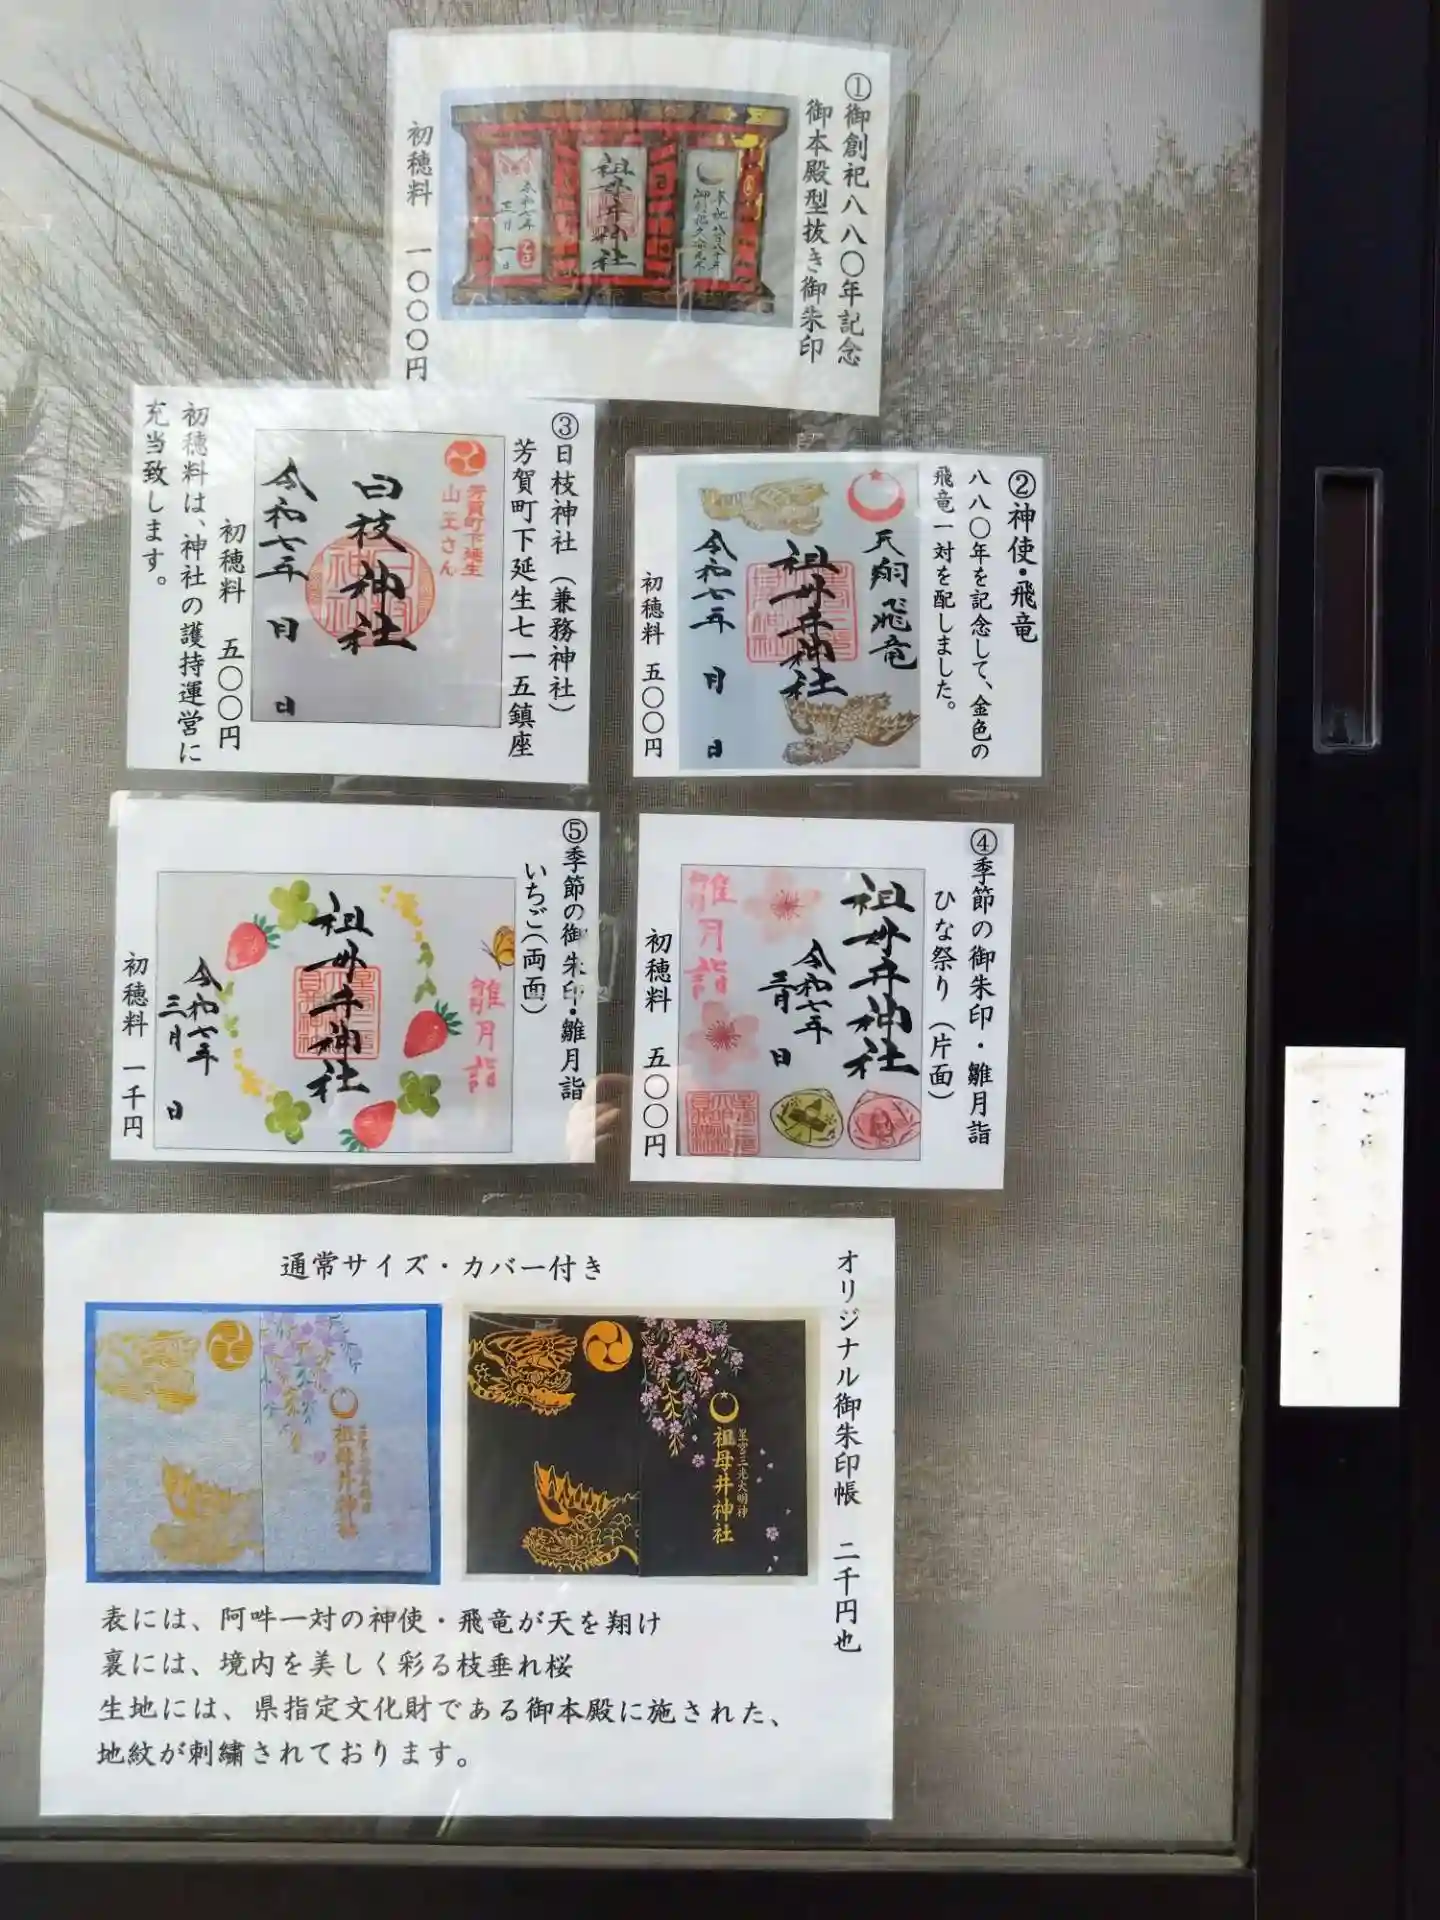 ①御創祀八八〇年記念
御本殿型抜き御朱印
祖母井神社
初穂料 一〇〇〇円
②神使・飛竜
八八〇年を記念して、金色の
飛竜一対を配しました。
天翔飛竜
祖母井神社
令和七年 月 日
初穂料 五〇〇円
③日枝神社（兼務神社）
芳賀町下延生七一五鎮座
芳賀町下延生
山王さん
日枝神社
令和七年 月 日
初穂料 五〇〇円
初穂料は、神社の護持運営に
充当致します。
④季節の御朱印・雛月詣
ひな祭り（片面）
祖母井神社
令和七年
三月 日
雛月詣
初穂料 五〇〇円
⑤季節の御朱印・雛月詣
いちご（両面）
雛月詣
祖母井神社
令和七年
三月 日
初穂料 一千円
オリジナル御朱印帳 二千円也
通常サイズ・カバー付き
祖母井神社
星宮三光大明神
祖母井神社
表には、阿吽一対の神使・飛竜が天を翔け
裏には、境内を美しく彩る枝垂れ桜
生地には、県指定文化財である御本殿に施された、
地紋が刺繍されております。